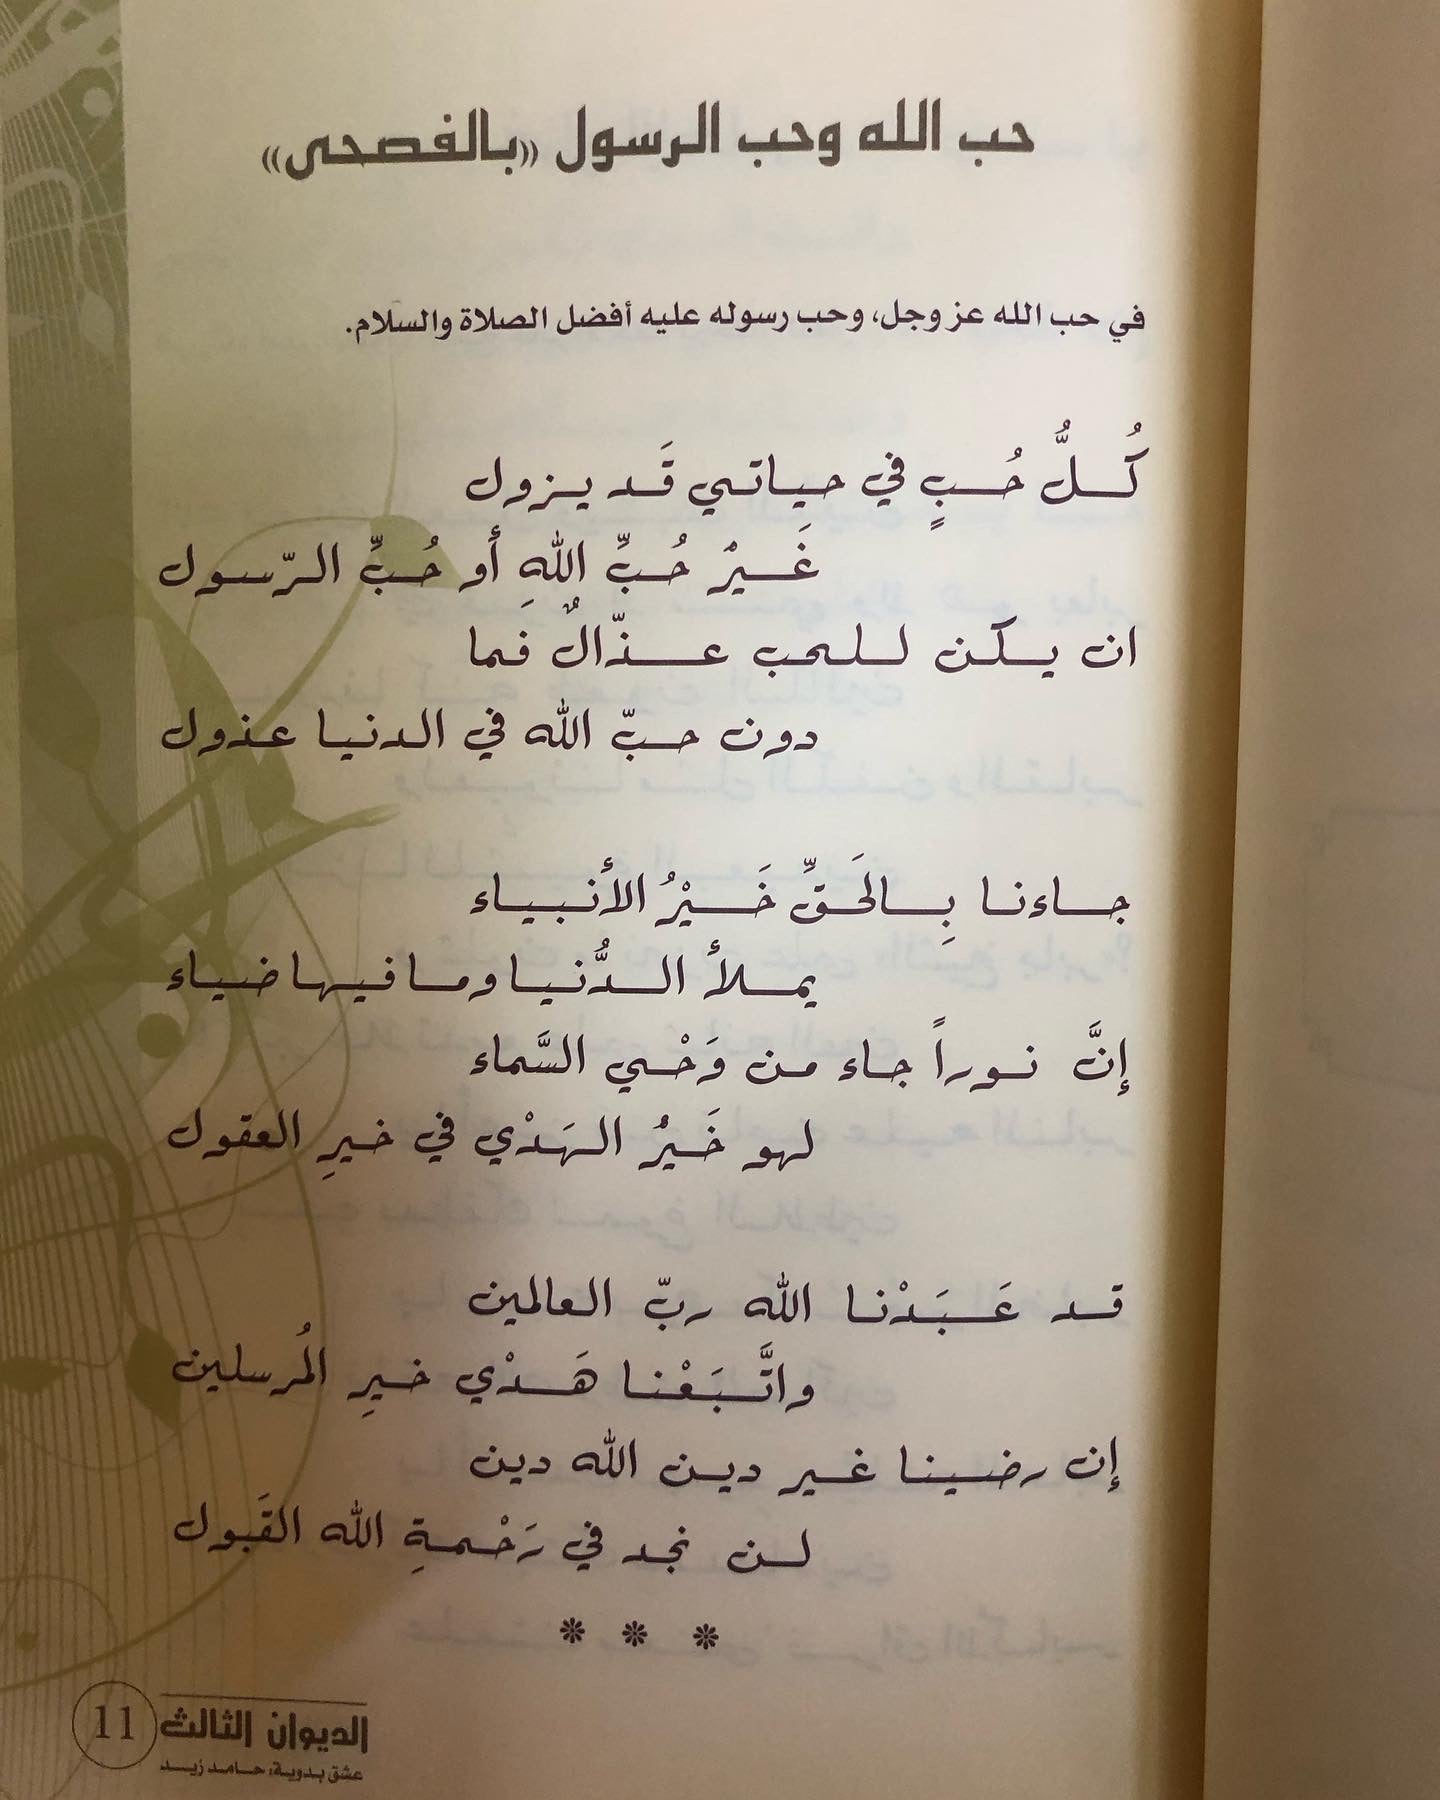 حب الله وحب الرسول «بالفصحى»
في حب الله عز وجل، وحب رسوله عليه أفضل الصلاة والسلام.
كُـلُّ حُـبٍ في حياتي قَد يزول
غَـيرْ حُـبِّ اللهِ أو حُـبِّ الرّسول
ان يكن للحب عـذّالٌ فَما
دون حبّ الله في الدنيا عذول
جاءنا بِالحَقِّ خَـيْرُ الأنبياء
يملأ الدُّنيا وما فيها ضياء
إنَّ نوراً جاء من وَحْي السَّماء
لهو خَيرُ الهَدْي في خيرِ العقول
قد عَبَدْنا الله ربّ العالمين
واتَّبَعْنا هَـدْي خيرِ المُرسلين
إن رضينا غير دين الله دين
لن نجد في رَحْمةِ الله القَبول
* * *
الديوان الثالث 11
عشق بدوية، حامد زيد